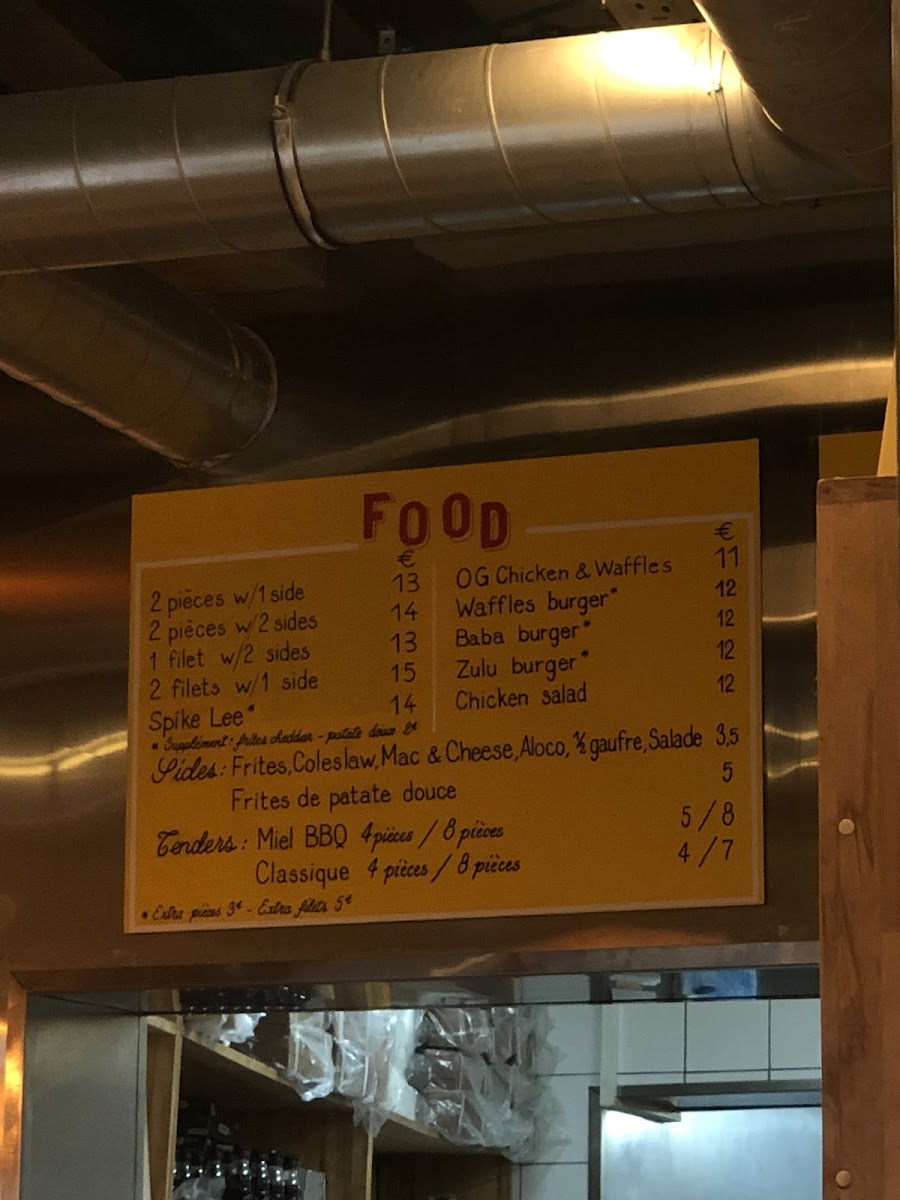 FOOD
€
2 pièces w/1 side 13
2 pièces w/2 sides 14
1 filet w/2 sides 13
2 filets w/1 side 15
Spike Lee* 14
* Supplément: frites cheddar - patate douce 2€
€
OG Chicken & Waffles 11
Waffles burger* 12
Baba burger* 12
Zulu burger* 12
Chicken salad 12
Sides: Frites, Coleslaw, Mac & Cheese, Aloco, ½ gaufre, Salade 3,5
Frites de patate douce 5
Tenders: Miel BBQ 4 pièces / 8 pièces 5/8
Classique 4 pièces / 8 pièces 4/7
* Extra pièces 3€ - Extra filets 5€